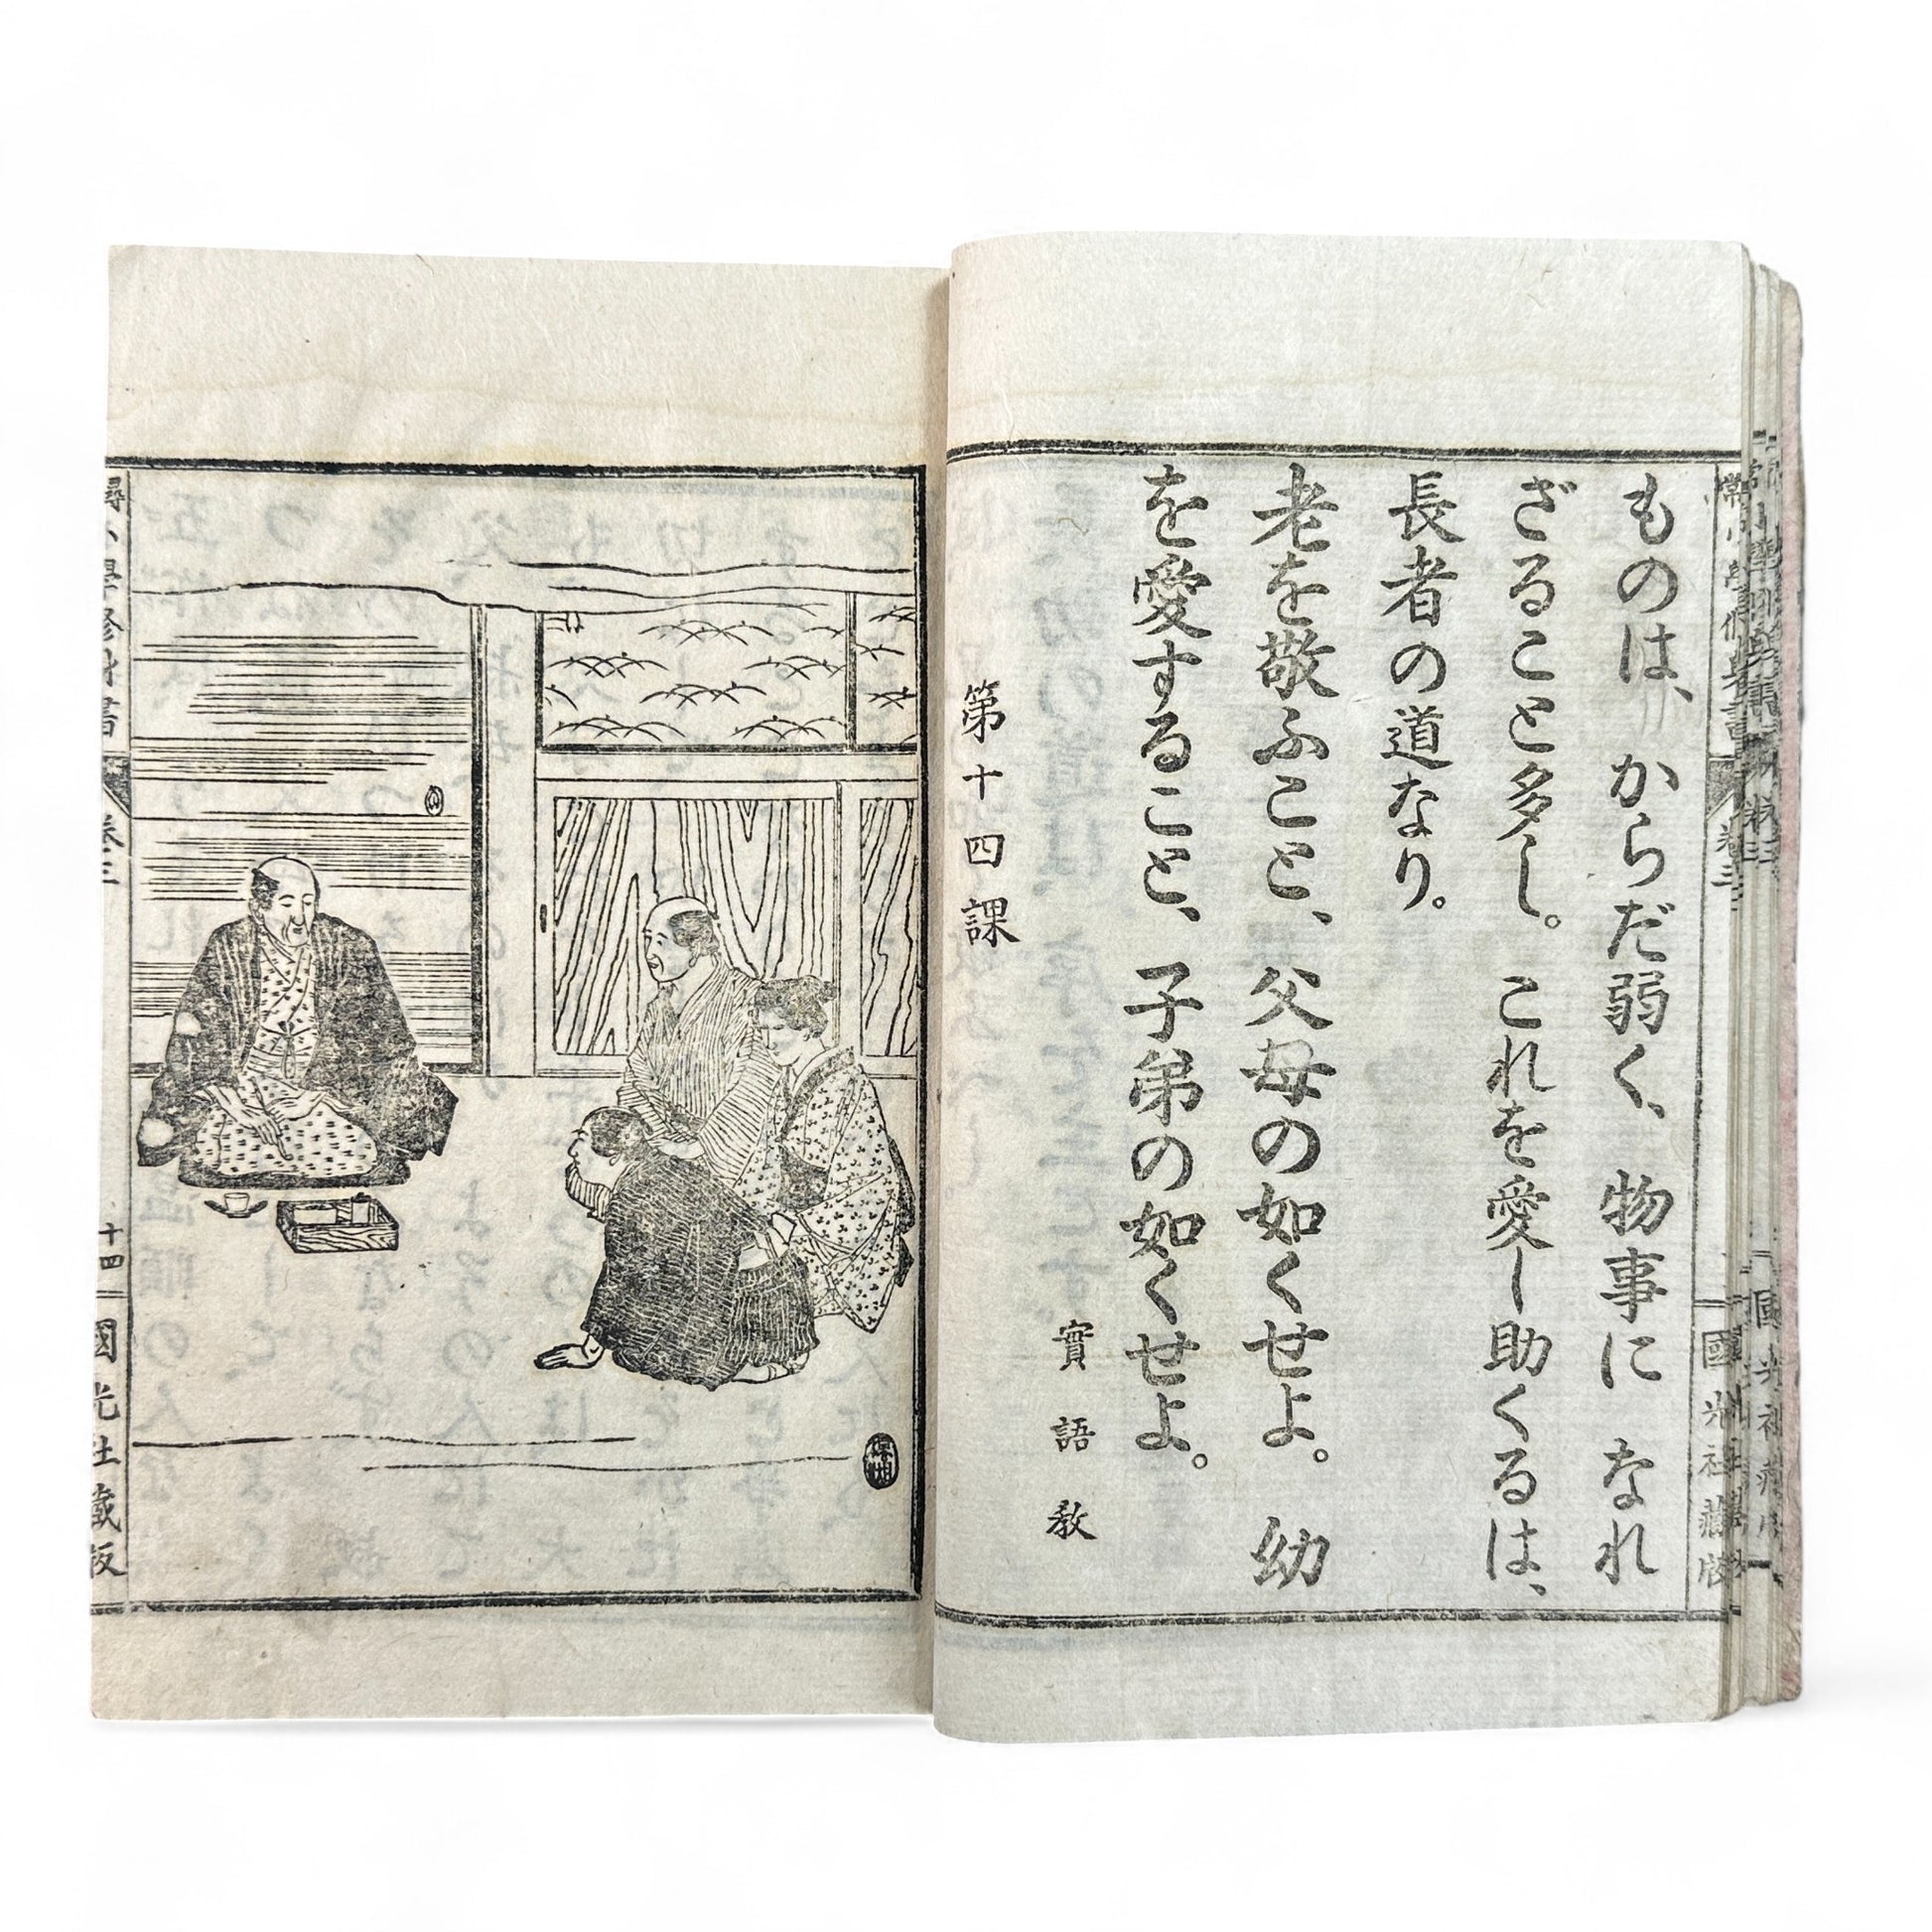 ものは、からだ弱く、物事に なれ
ざること多し。これを愛し助くるは、
長者の道なり。
老を敬ふこと、父母の如くせよ。幼
を愛すること、子弟の如くせよ。
實語教
第十四課
尋常小學修身書
卷三
十四
國光社藏版